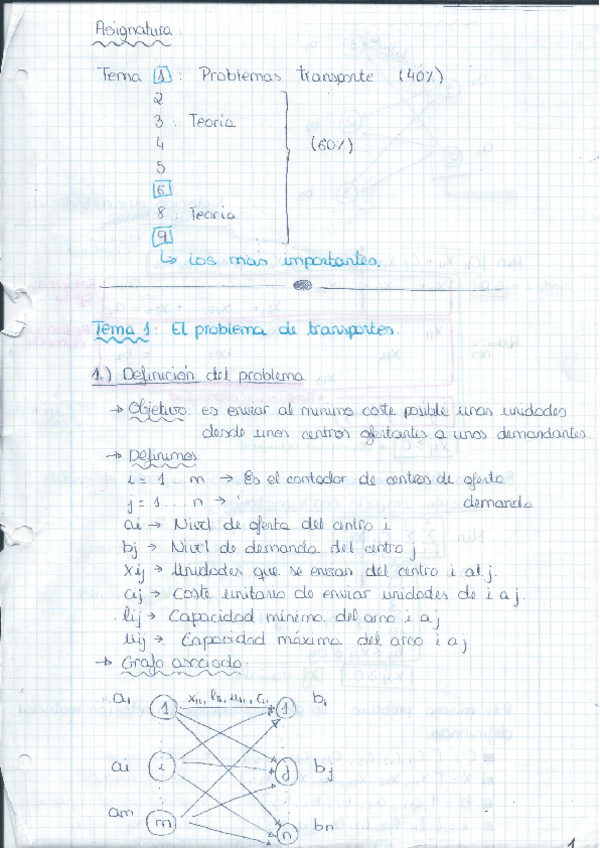 Asignatura:
Tema 1 : Problemas transporte (40%)
2
3 : Teoria
4
(60%)
5
6
8 : Teoria
9
↳ Los más importantes.
Tema 1: El problema de transportes.
1.) Definición del problema
→ Objetivo: es enviar al mínimo coste posible unas unidades
desde unos centros ofertantes a unos demandantes.
→ Definimos
i = 1 ... m → Es el contador de centros de oferta
j = 1 ... n → " demanda
ai → Nivel de oferta del centro i
bj → Nivel de demanda del centro j
xij → Unidades que se envian del centro i al j.
cij → Coste unitario de enviar unidades de i a j.
lij → Capacidad mínima del arco i a j
uij → Capacidad máxima del arco i a j
→ Grafo asociado:
a1 1 x11, l11, u11, c11 1 b1
ai i j bj
am m n bn
1